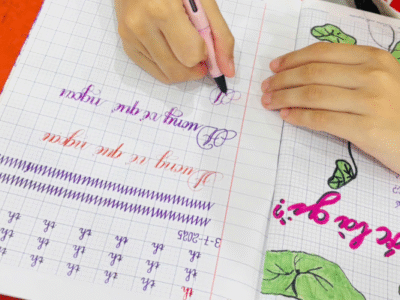 th
th th th
th th th th th
th th th th th
3-7-2025
Hương về quê ngoại
Hương về quê ngoại
H
là gì?